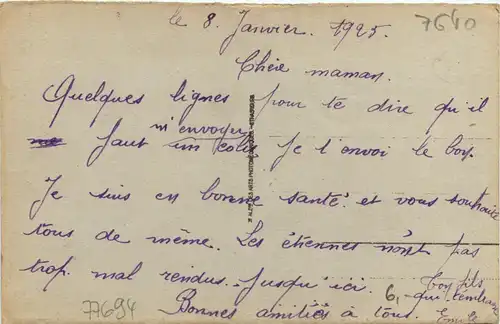 le 8. Janvier. 1925.
7640
Chère maman.
Quelques lignes pour te dire qu'il
faut m'envoyer un colis je t'envoi le bon.
Je suis en bonne santé. et vous souhaite
tous de même. Les étrennes n'ont pas
trop. mal rendus. Jusqu'ici.
Ton fils
qui t'embrasse
Bonnes amitiés à tous.
77694